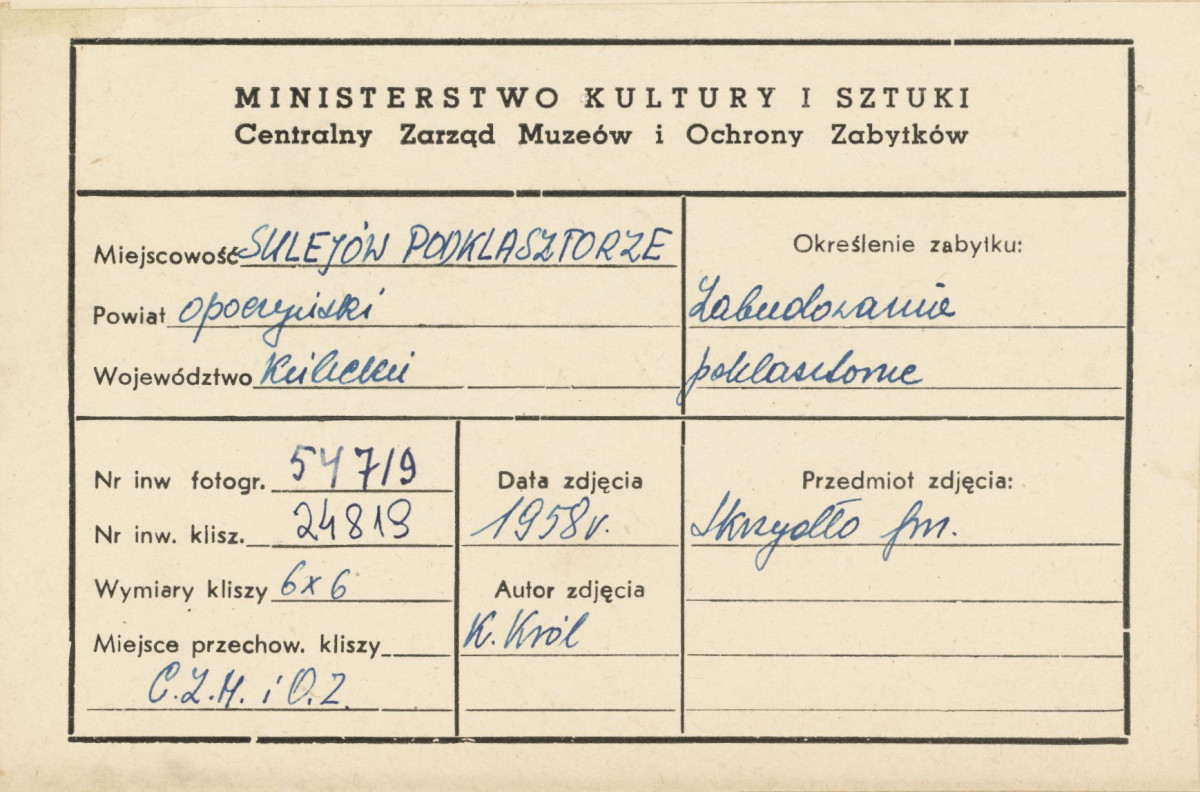 MINISTERSTWO KULTURY I SZTUKI
Centralny Zarząd Muzeów i Ochrony Zabytków
Miejscowość SULEJÓW PODKLASZTORZE
Powiat opoczyński
Województwo Kieleckie
Określenie zabytku:
Zabudowanie
poklasztorne
Nr inw fotogr. 54719
Nr inw. klisz. 24819
Wymiary kliszy 6x6
Miejsce przechow. kliszy
C.Z.M. i O.Z.
Data zdjęcia
1958 r.
Autor zdjęcia
K. Król
Przedmiot zdjęcia:
Skrzydło